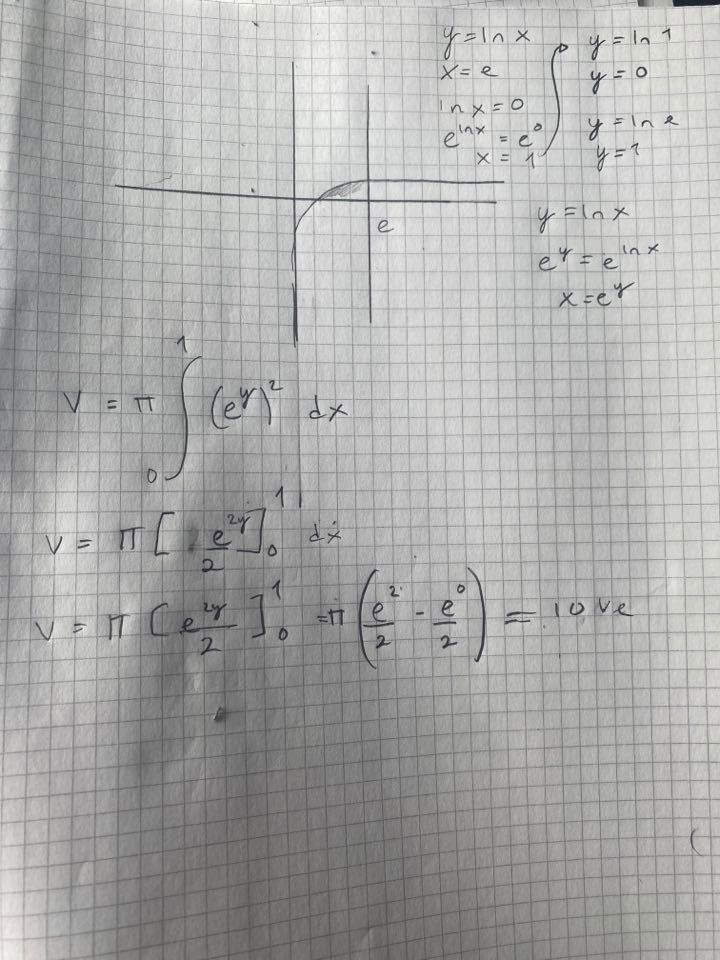 y = ln x
x = e
ln x = 0
e^{ln x} = e^0
x = 1
y = ln 1
y = 0
y = ln e
y = 1
e
y = ln x
e^y = e^{ln x}
x = e^y
V = π ∫_0^1 (e^y)^2 dx
V = π [e^{2y}/2]_0^1 dx
V = π [e^{2y}/2]_0^1 = π (e^2/2 - e^0/2) = 10 ve
(